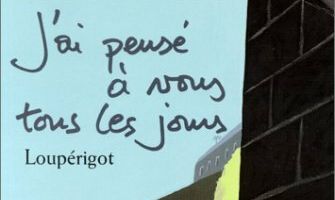 J'ai pensé
à vous
tous les jours
Loupérigot